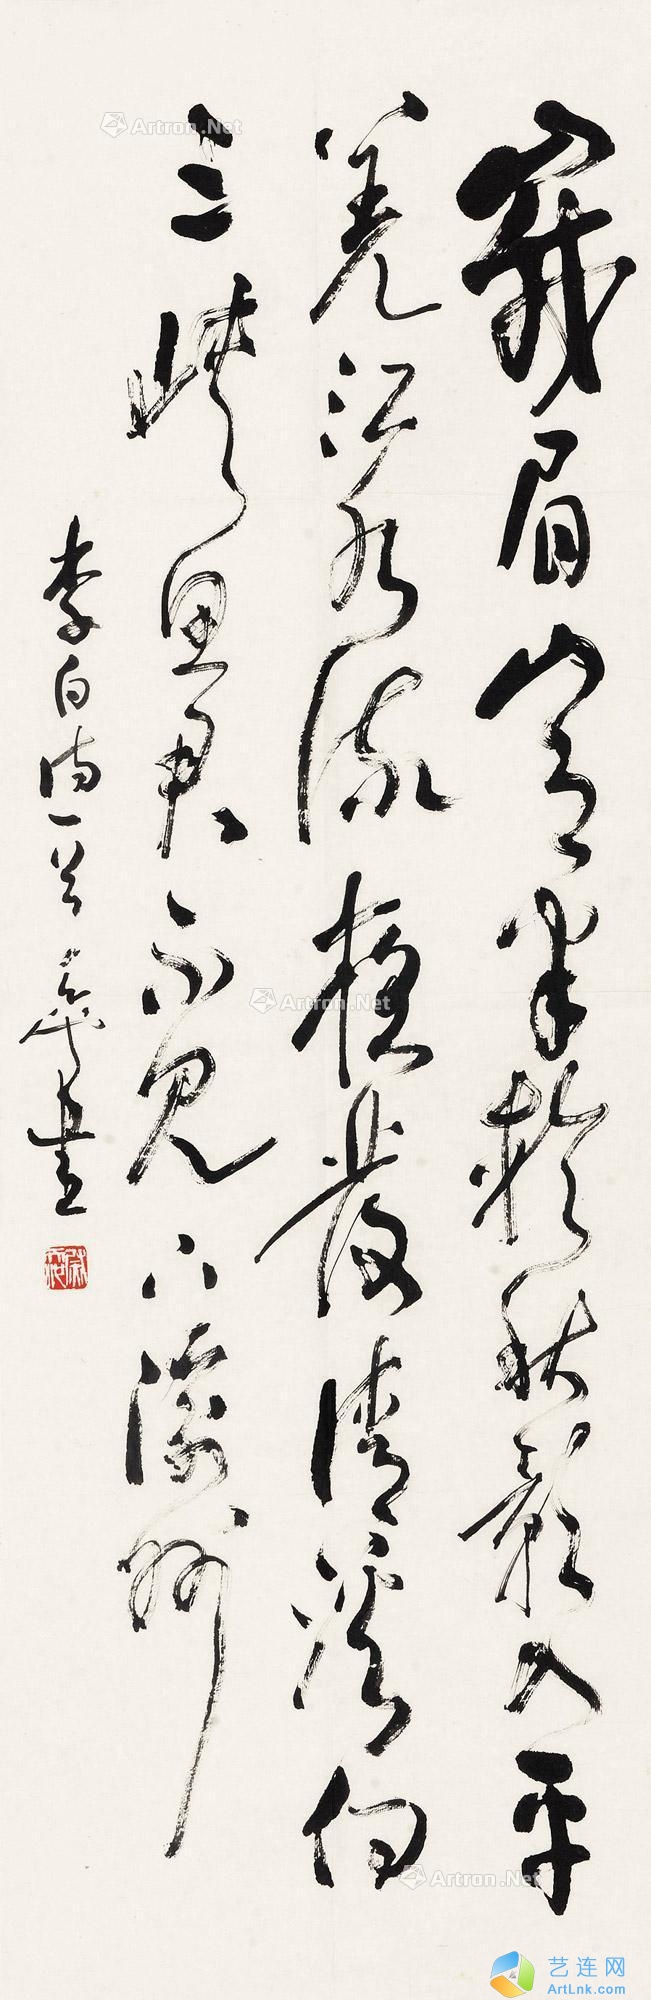 峨眉山月半輪秋影入平
羌江水流夜發清溪向
三峽思君不見下渝州
李白詩一首 書
Artron.Net
Artron.Net
Artron.Net
艺连网
ArtLnk.com